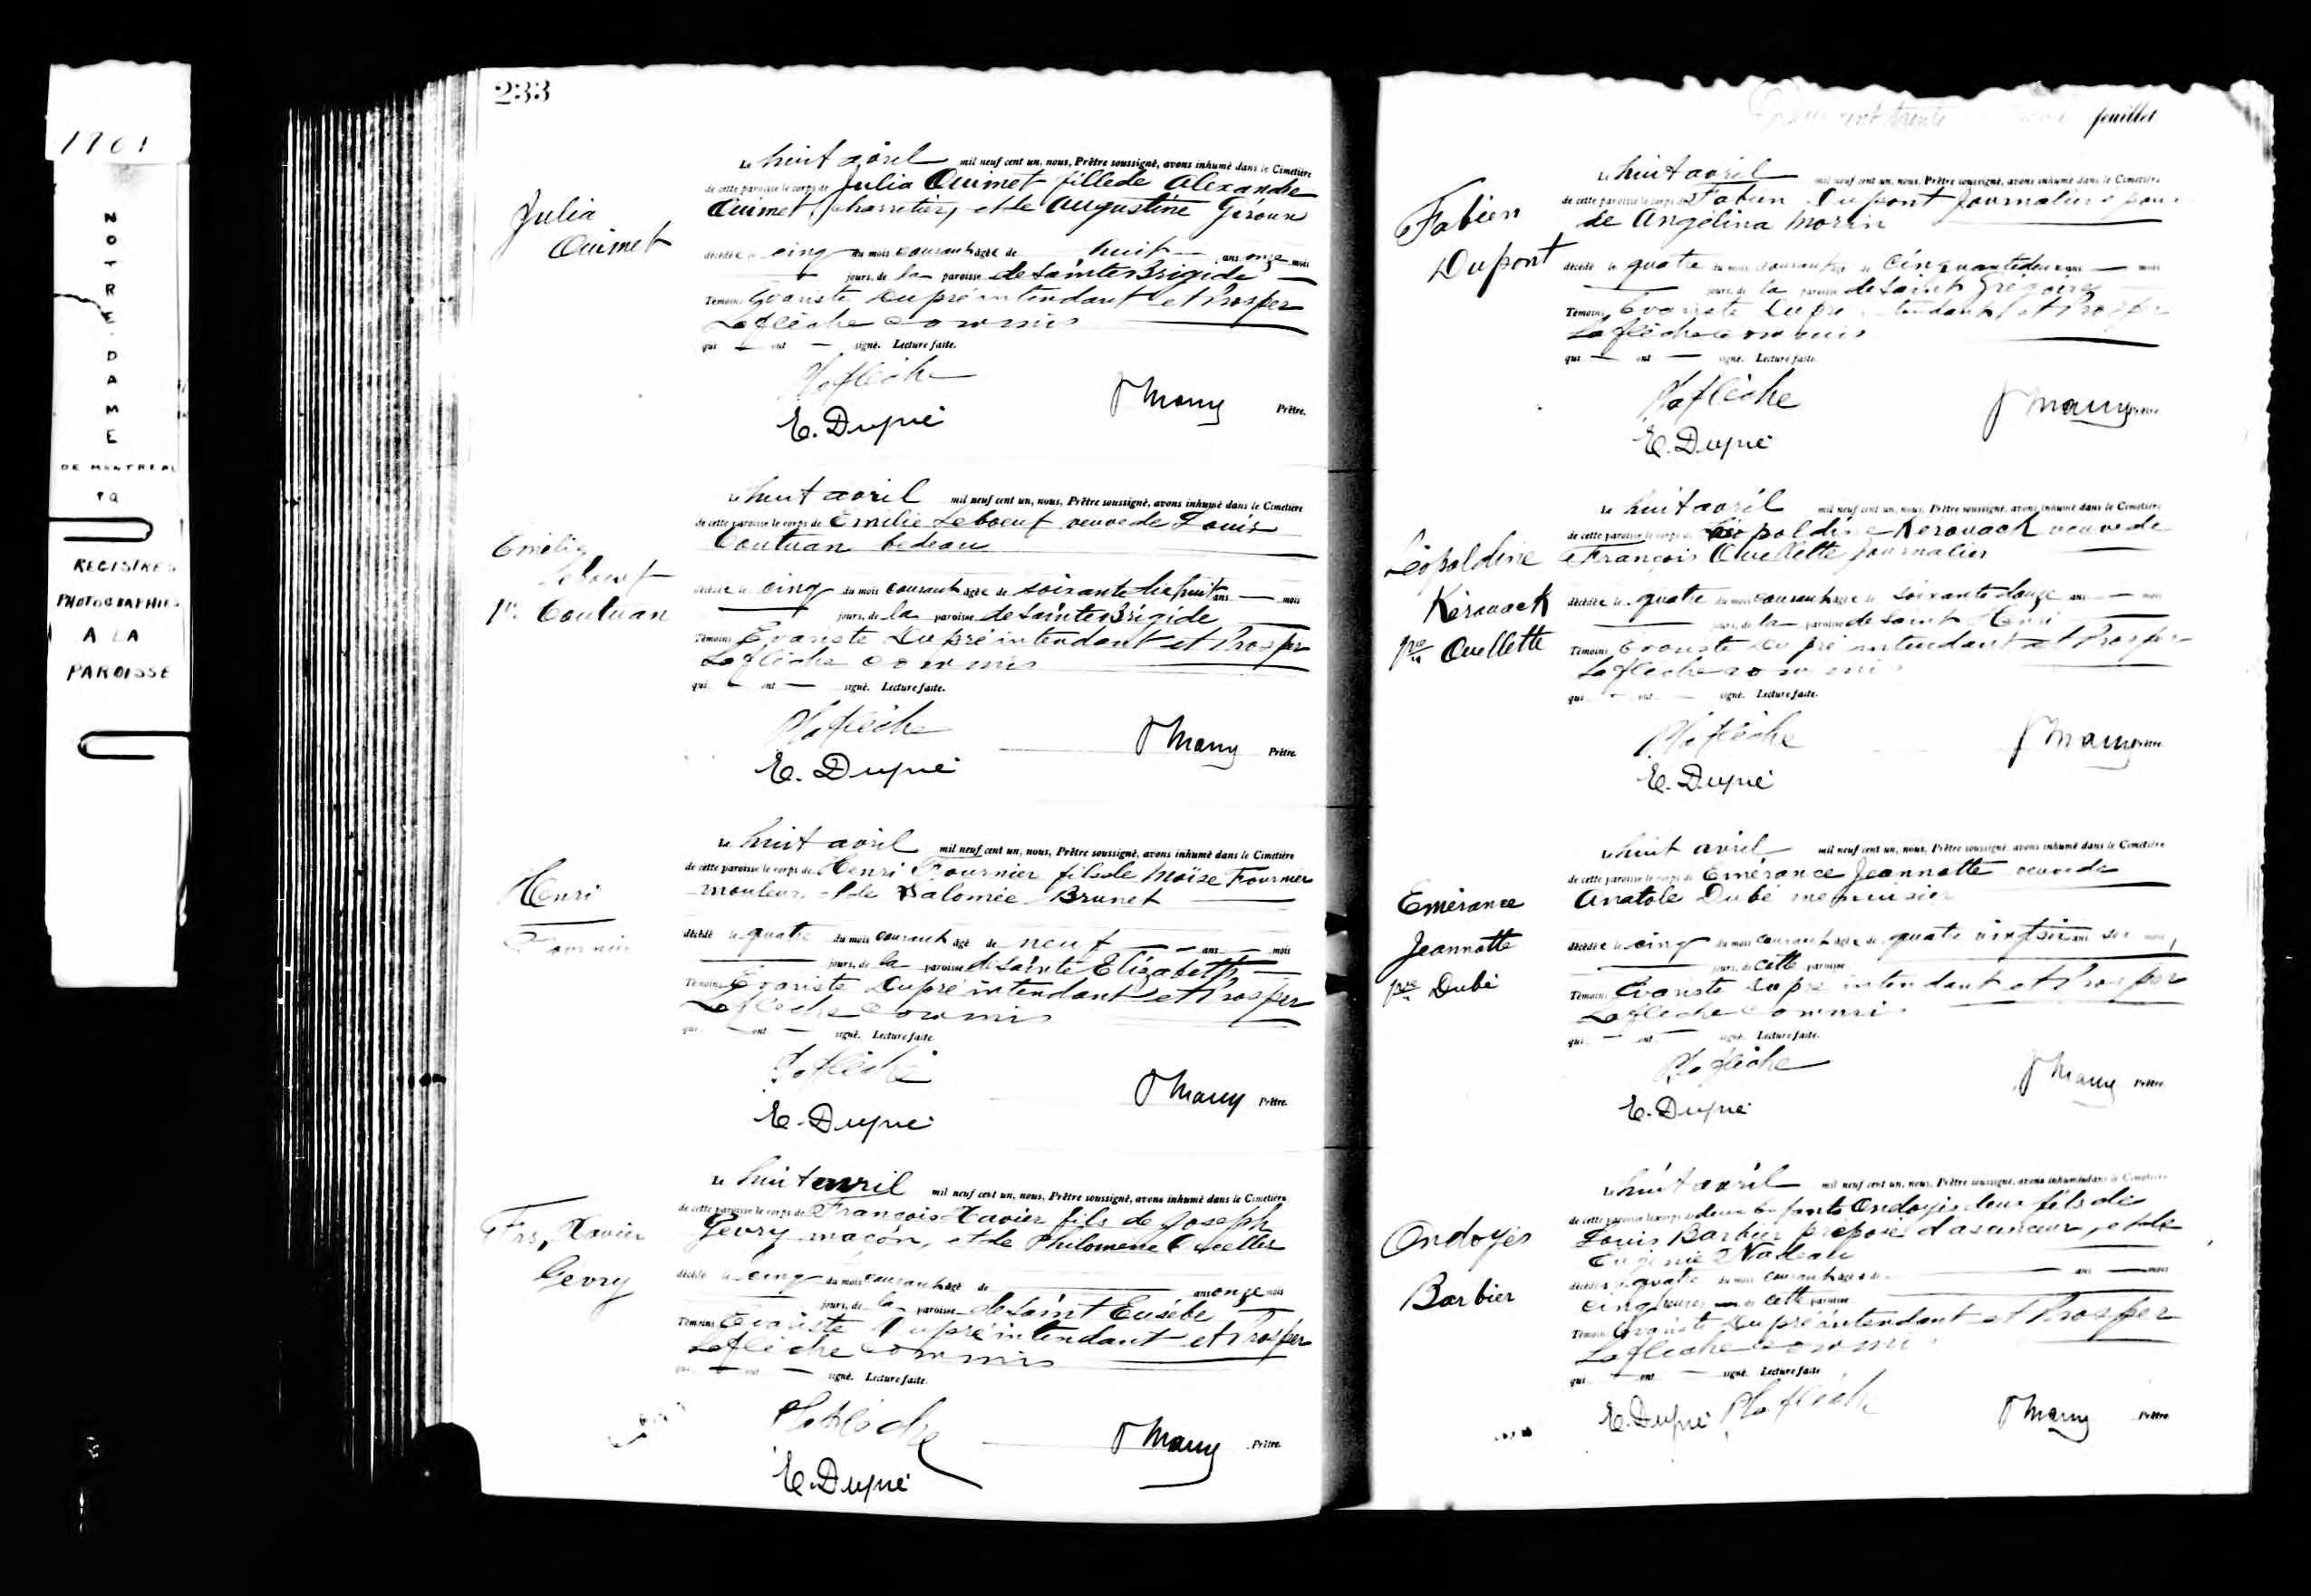 1901
NOTRE-DAME
DE MONTREAL
PQ
REGISTRES
PHOTOGRAPHIES
A LA
PAROISSE
233
Julia
Ouimet
Le huit avril mil neuf cent un, nous, Prêtre soussigné, avons inhumé dans le Cimetière
de cette paroisse le corps de Julia Ouimet fille de Alexandre
Ouimet, charretier, et de Augustine Giroux
décédée le cinq du mois courant agée de huit ans onze mois
jours, de la paroisse de Sainte Brigide
Témoins Evariste Dupré intendant et Prosper
Laflèche commis
qui ont signé. Lecture faite.
PLaflèche
E. Dupré
Prêtre.
Emélie
Leboeuf
Ve Coutuan
Le huit avril mil neuf cent un, nous, Prêtre soussigné, avons inhumé dans le Cimetière
de cette paroisse le corps de Emélie Leboeuf veuve de Louis
Coutuan bedeau
décédée le cinq du mois courant agée de soixante dix huit ans mois
jours, de la paroisse de Sainte Brigide
Témoins Evariste Dupré intendant et Prosper
Laflèche commis
qui ont signé. Lecture faite.
PLaflèche
E. Dupré
Prêtre.
Henri
Fournier
Le huit avril mil neuf cent un, nous, Prêtre soussigné, avons inhumé dans le Cimetière
de cette paroisse le corps de Henri Fournier fils de Moïse Fournier
mouleur, et de Salomée Brunet
décédé le quatre du mois courant agé de neuf ans mois
jours, de la paroisse de Sainte Elizabeth
Témoins Evariste Dupré intendant et Prosper
Laflèche commis
qui ont signé. Lecture faite.
PLaflèche
E. Dupré
Prêtre.
Frs. Xavier
Gevry
Le huit avril mil neuf cent un, nous, Prêtre soussigné, avons inhumé dans le Cimetière
de cette paroisse le corps de François Xavier fils de Joseph
Gevry maçon, et de Philomène
décédé le cinq du mois courant agé de ans onze mois
jours, de la paroisse de Saint Eusèbe
Témoins Evariste Dupré intendant et Prosper
Laflèche commis
qui ont signé. Lecture faite.
PLaflèche
E. Dupré
Prêtre.
Deux cent trente feuillet
Fabien
Dupont
Le huit avril mil neuf cent un, nous, Prêtre soussigné, avons inhumé dans le Cimetière
de cette paroisse le corps de Fabien Dupont journalier époux
de Angélina Morin
décédé le quatre du mois courant agé de cinquante deux ans mois
jours, de la paroisse de Saint Grégoire
Témoins Evariste Dupré intendant et Prosper
Laflèche commis
qui ont signé. Lecture faite.
PLaflèche
E. Dupré
Prêtre.
Léopoldine
Kérouack
Ve Ouellette
Le huit avril mil neuf cent un, nous, Prêtre soussigné, avons inhumé dans le Cimetière
de cette paroisse le corps de Léopoldine Kerouack veuve de
François Ouellette journalier
décédée le quatre du mois courant agée de soixante douze ans mois
jours, de la paroisse de Saint Henri
Témoins Evariste Dupré intendant et Prosper
Laflèche commis
qui ont signé. Lecture faite.
PLaflèche
E. Dupré
Prêtre.
Emérance
Jeannotte
Ve Dubé
Le huit avril mil neuf cent un, nous, Prêtre soussigné, avons inhumé dans le Cimetière
de cette paroisse le corps de Emérance Jeannotte veuve de
Anatole Dubé menuisier
décédée le cinq du mois courant agée de quatre vingt six ans six mois
jours, de cette paroisse
Témoins Evariste Dupré intendant et Prosper
Laflèche commis
qui ont signé. Lecture faite.
PLaflèche
E. Dupré
Prêtre.
Ondoyés
Barbier
Le huit avril mil neuf cent un, nous, Prêtre soussigné, avons inhumé dans le Cimetière
de cette paroisse le corps de deux Enfants Ondoyés deux fils de
Louis Barbier préposé d'ascenceur, et de
Eugénie Nadeau
décédés le quatre du mois courant agés de ans mois
cinq heures de cette paroisse
Témoins Evariste Dupré intendant et Prosper
Laflèche commis
qui ont signé. Lecture faite.
E. Dupré PLaflèche
Prêtre.